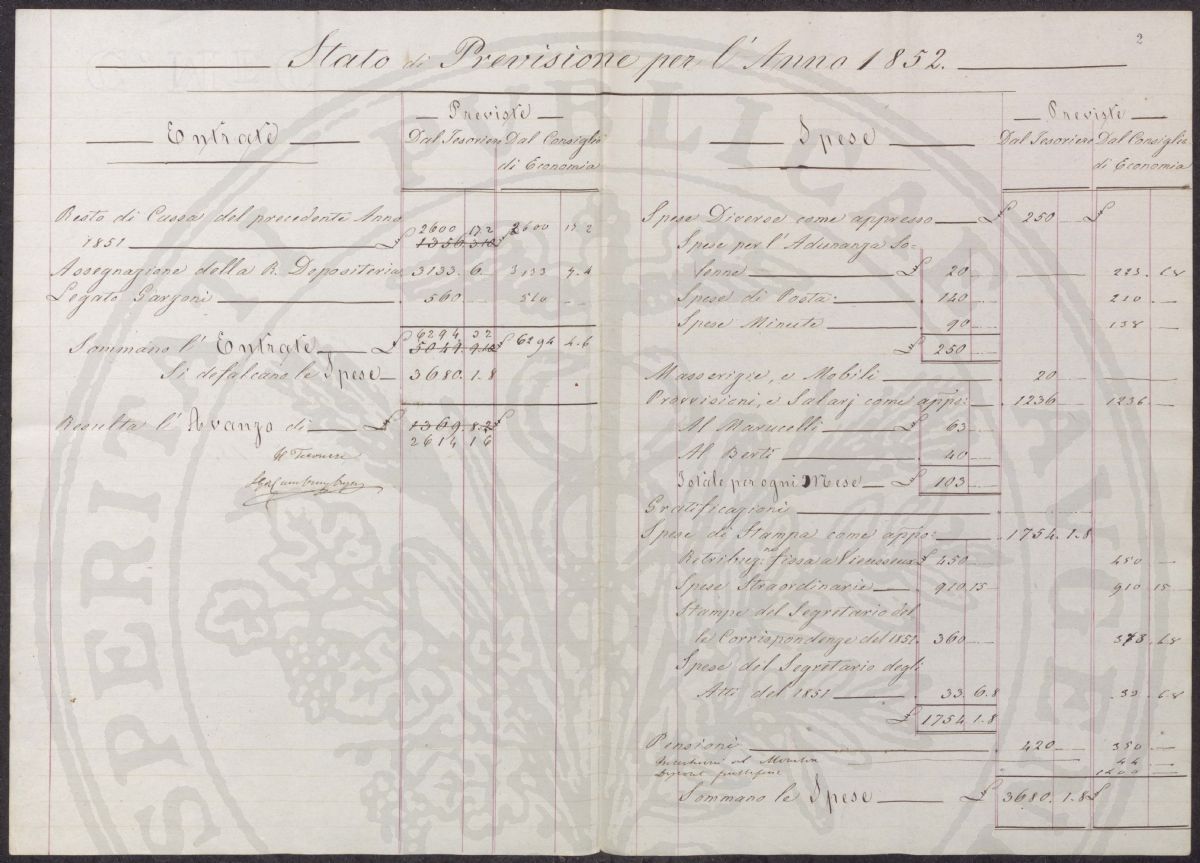 2
Stato di Previsione per l'Anno 1852.
Entrate
Previste
Dal Tesoriere Dal Consiglio
di Economia
Resto di Cassa del precedente Anno
2600 17 2 2600 17 2
1851 £
Assegnazione della R. Depositeria 3133. 6. 3133 . 4
Legato 560 560
6294 3 2
Sommano l'Entrate £ £ 6294 . 6
Si defalcano le Spese 3680. 1. 8
Resulta l'Avanzo di £ 1369 8. 2 £
2614 1 6
Il Tesoriere
Spese
Previste
Dal Tesoriere Dal Consiglio
di Economia
Spese Diverse come appresso £ 250 £
Spese per l'Adunanza So=
lenne £ 20 223 . 6 8
Spese di Posta 140 210
Spese Minute 90 138
£ 250
Masserizie, e Mobili 20
Provvisioni, e Salarj come appo: 1236 1236
Al Marucelli £ 63
Al Berti 40
Totale per ogni Mese £ 103
Gratificazioni
Spese di Stampa come appo: 1754. 1. 8
Retribuz:ne fissa a Vieusseux £ 450 450
Spese Straordinarie 910 15 910 15
Stampe del Segretario del
le Corrispondenze del 1851. 360 373 . 6 8
Spese del Segretario degli
Atti del 1851 33. 6. 8 . 6 8
£ 1754. 1. 8
Pensioni 420 350
44
Sommano le Spese £ 3680. 1. 8 £
SPERITATI PUBLICAE